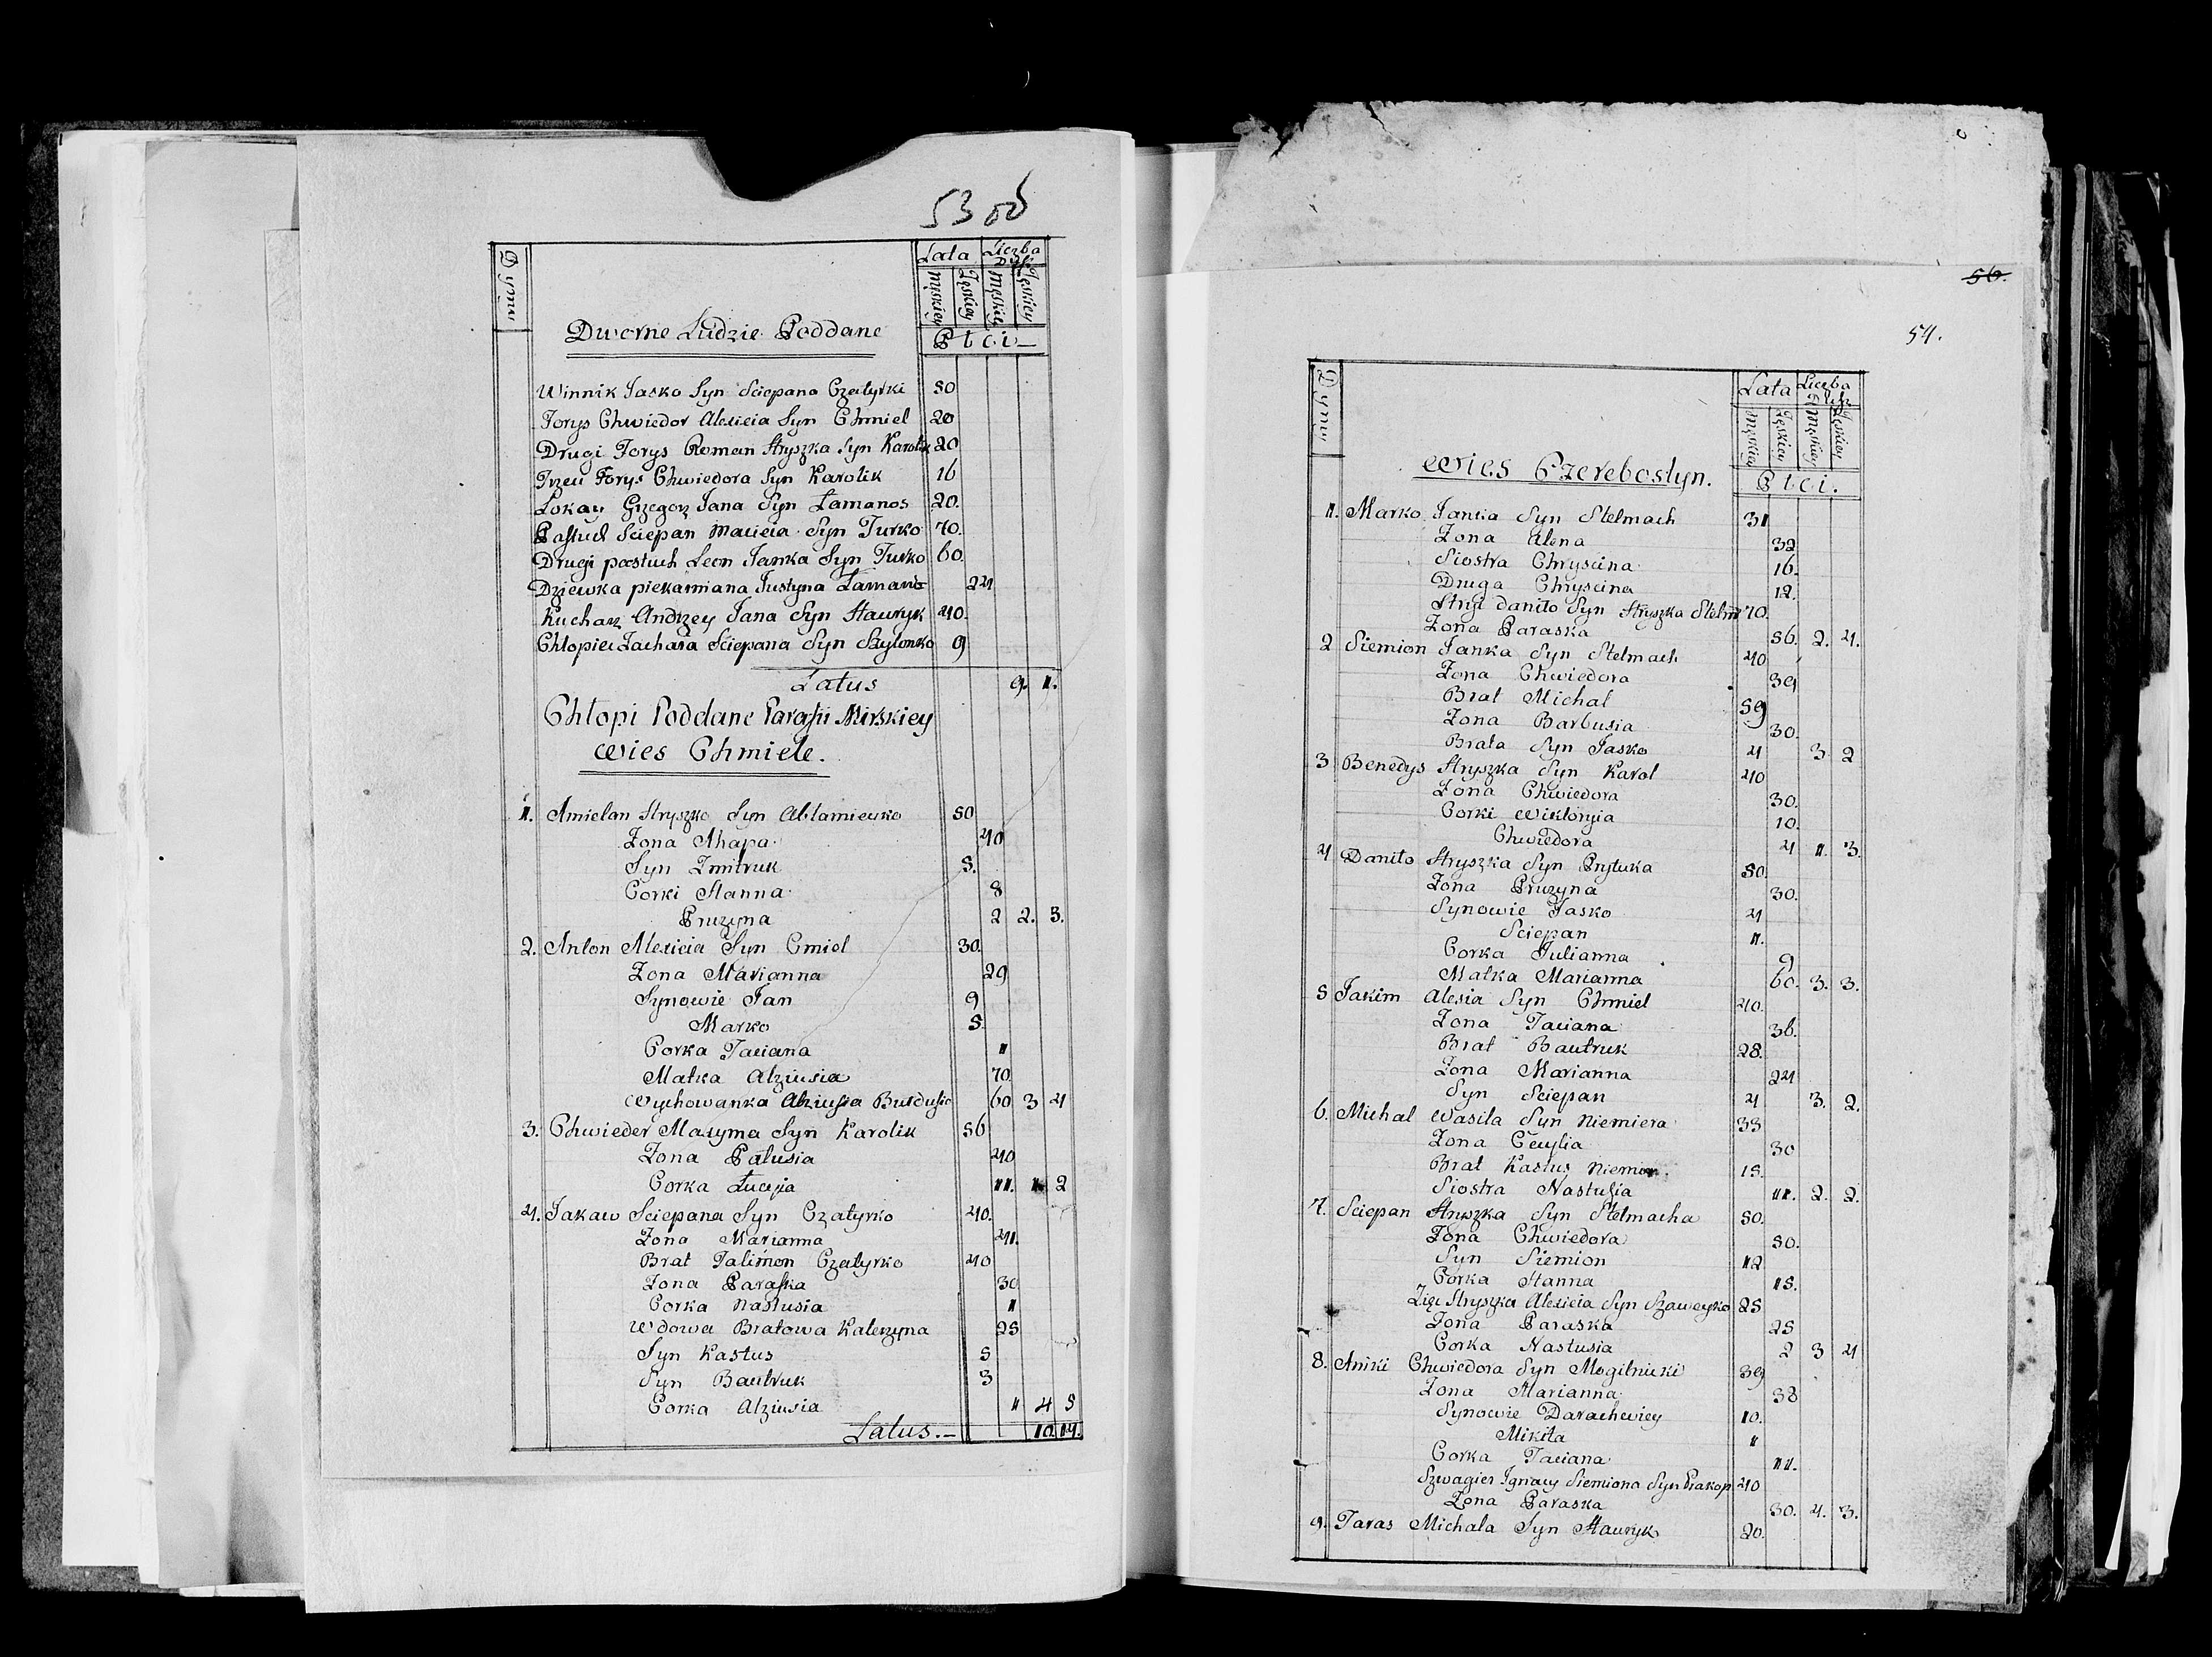 53 об
Dymy
Lata Liczba Duß
Męskiey Żęskiey Męskiey Żęskiey
Płci
Dworne Ludzie Poddane
Winnik Jasko Syn Sciepana Czatyrki 50
Forys Chwiedor Alexieia Syn Chmiel 20
Drugi Forys Roman Hryszka Syn Karolik 20
Trzeci Forys Chwiedora Syn Karolik 16
Lokay Grzegorz Jana Syn Łamanos 20.
Pastuch Sciepan Macieia Syn Turko 70.
Drugi pastuch Leon Janka Syn Turko 60.
Dziewka piekarniana Justyna Łamano 24
Kucharz Andrzey Jana Syn Hawryk 40.
Chłopiec Zachara Sciepana Syn Szylonko 9
Latus 9. 1.
Chłopi Poddane Parafii Mirskiey
Wies Chmiele.
1. Amielan Hryszko Syn Abłamieyko 50
Żona Ahapa 40
Syn Zmitruk 5.
Corki Hanna 8
Pruzyna 2 2. 3.
2. Anton Alexieia Syn Cmiel 30.
Żona Marianna 29
Synowie Jan 9
Marko 5
Corka Taciana 1
Matka Alziusia 70
Wychowanka Alziusia Burdusia 60 3 4
3. Chwieder Maxyma Syn Karolik 56
Żona Palusia 40
Corka Łucyia 11. 1 2
4. Jakaw Sciepana Syn Czatyrko 40.
Żona Marianna 41.
Brat Palimon Czatyrko 40
Żona Paraska 30
Corka Nastusia 1
Wdowa Bratowa Katerzyna 25
Syn Kastus 5
Syn Bautruk 3
Corka Alziusia 1 4 5
Latus.— 10 14.
56.
54.
Dymy
Lata Liczba Dusz
Męskiey Żęskiey Męskiey Żęskiey
Płci.
Wies Czerebostyn.
1. Marko Janka Syn Stelmach 31
Żona Alena 32
Siostra Chryscina 16.
Druga Chryscina 12.
Stryi Daniło Syn Hryszka Stelm 70.
Żona Paraska 56. 2. 4.
2 Siemion Janka Syn Stelmach 40
Żona Chwiedora 39
Brat Michał 59
Żona Barbusia 30.
Brata Syn Jasko 4 3 2
3 Benedys Hryszka Syn Karol 40
Żona Chwiedora 30.
Corki Wiktoryia 10.
Chwiedora 4 1. 3.
4 Daniło Hryszka Syn Prytuka 50.
Żona Pruzyna 30.
Synowie Jasko 4
Sciepan 1.
Corka Julianna 9
Matka Marianna 60. 3. 3.
5 Jakim Alexia Syn Chmiel 40.
Żona Taciana 36.
Brat Bautruk 28.
Żona Marianna 24
Syn Sciepan 4 3. 2.
6. Michał Wasila Syn Niemiera 33
Żona Cecylia 30
Brat Kastus Niemier. 15.
Siostra Nastusia 11. 2. 2.
7. Sciepan Hryszka Syn Stelmacha 50.
Żona Chwiedora 50.
Syn Siemion 12
Corka Hanna 15.
Zięc Hryszka Alexieia Syn Szaweyko 25
Żona Paraska 25
Corka Nastusia 2 3 4
8. Aniki Chwiedora Syn Mogilnicki 39
Żona Marianna 38
Synowie Darachwiey 10.
Mikita 1
Corka Taciana 11.
Szwagier Ignacy Siemiona Syn Prakop. 40
Żona Paraska 30. 4. 3.
9. Taras Michala Syn Hawryk 20.